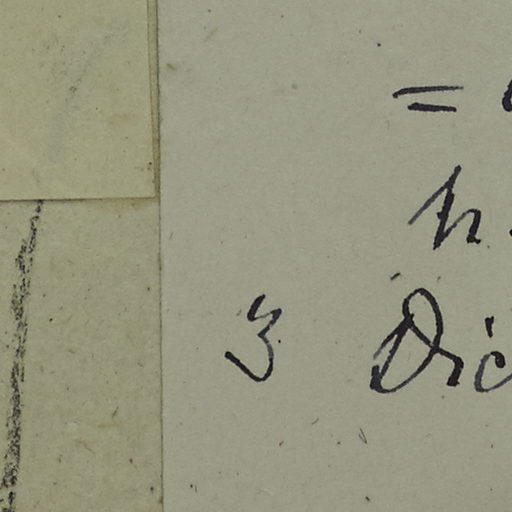 =
h
3 Dic